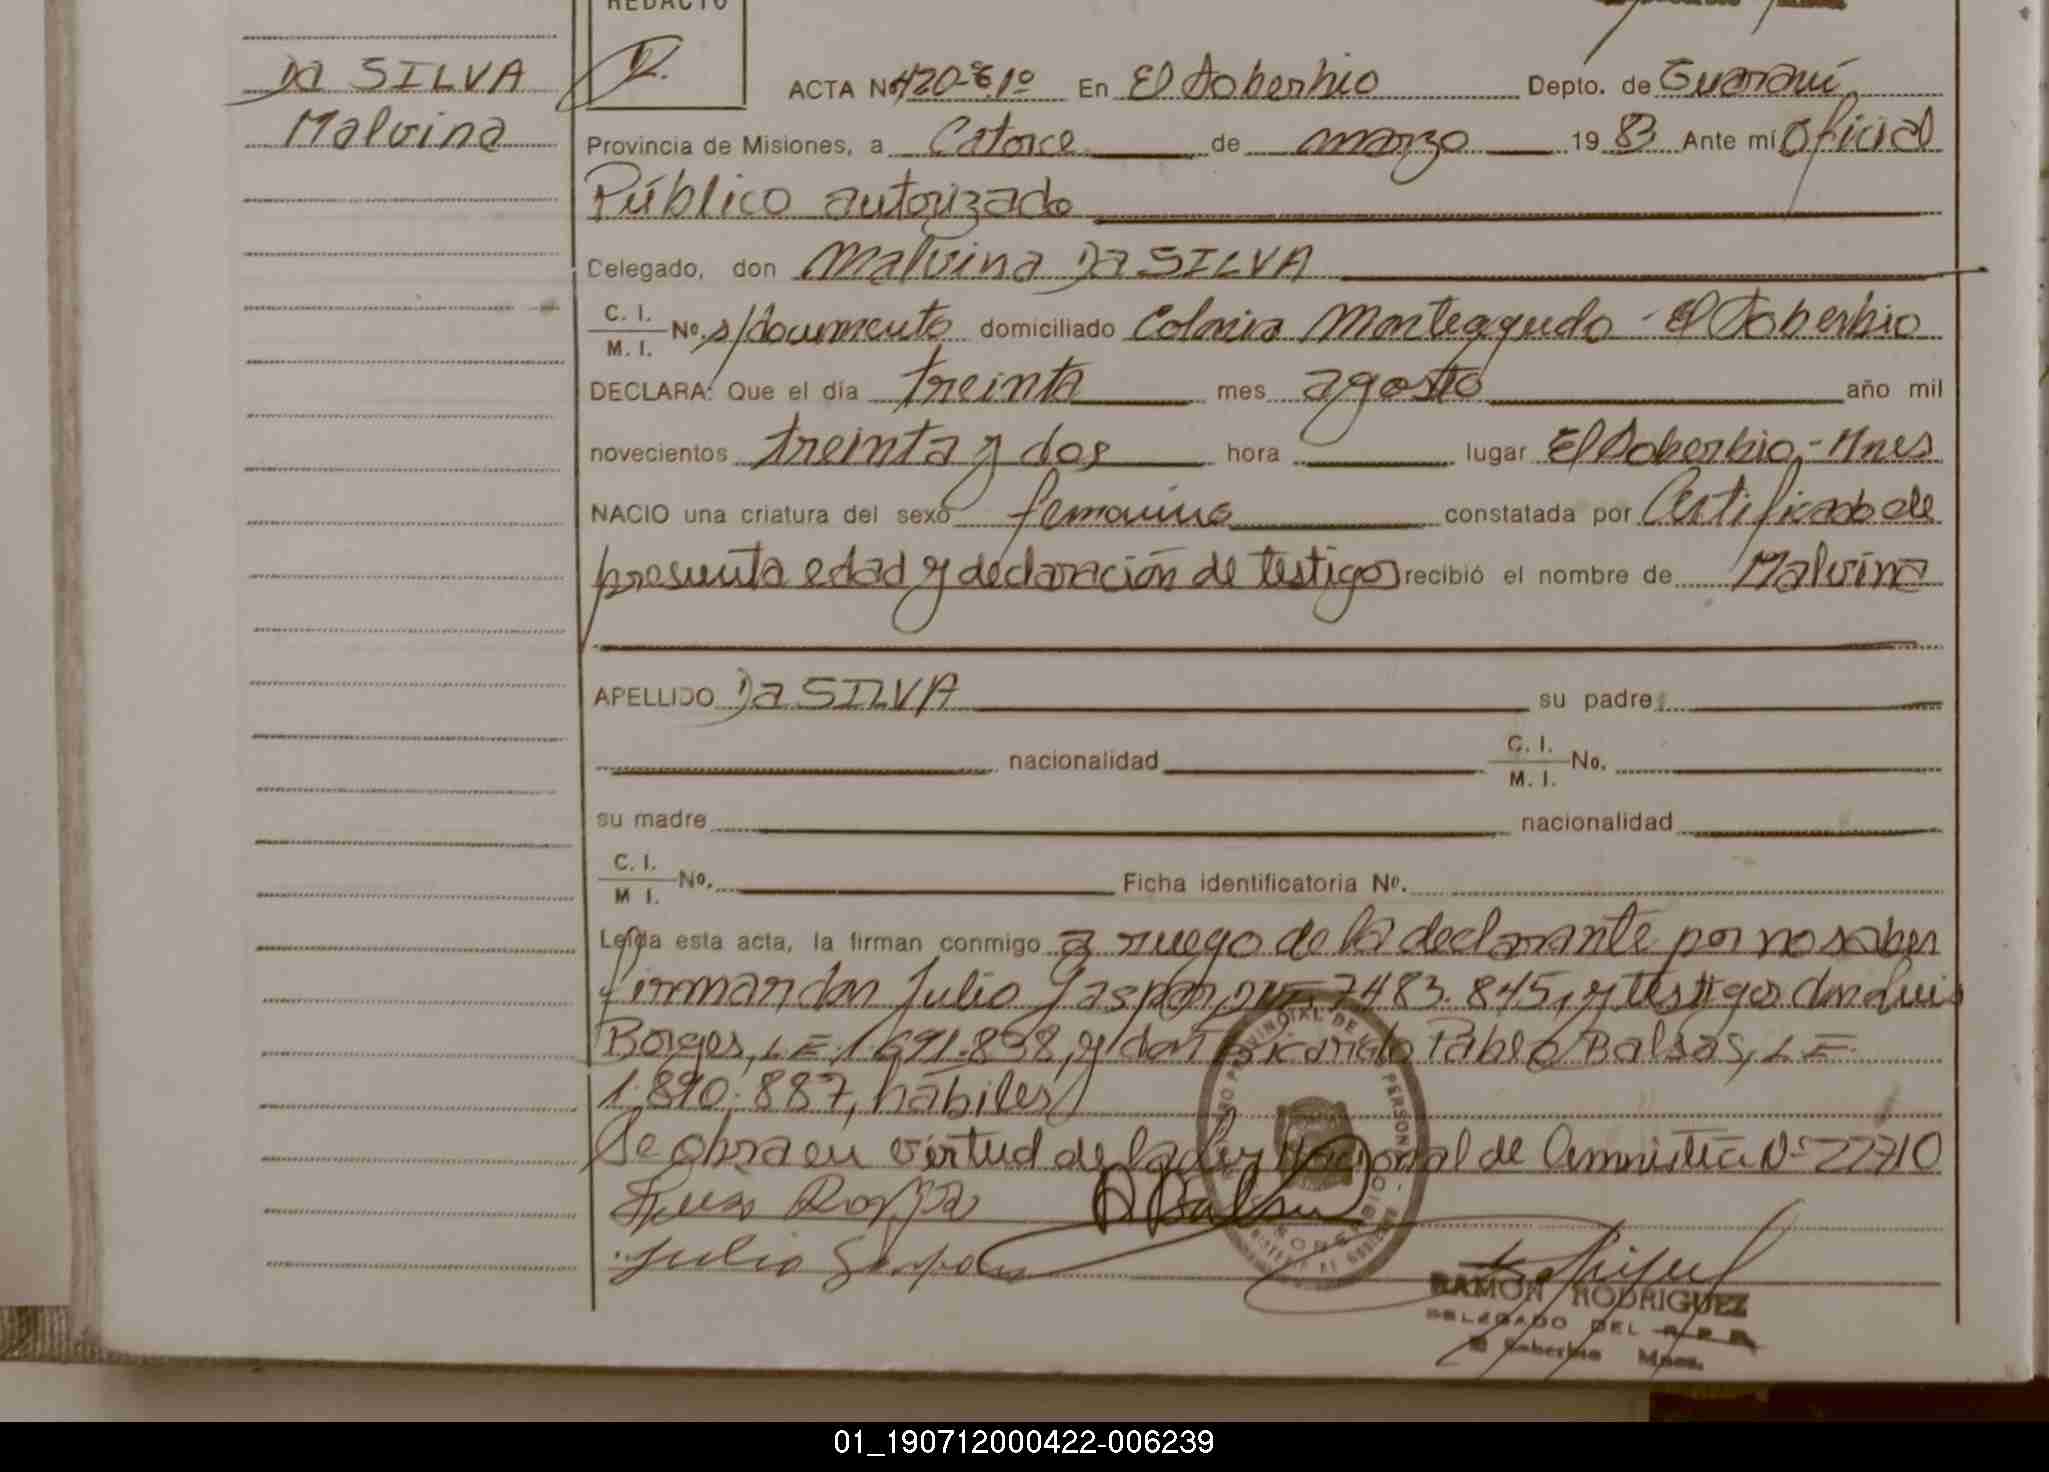 REDACTO
Da SILVA
Malvina
ACTA Nº 420-t.1º En El Soberbio Depto. de Guaraní
Provincia de Misiones, a Catorce de marzo 19 83 Ante mí Oficial
Público autorizado
Celegado, don Malvina Da SILVA
C. I.
M. I. Nº. s/documento domiciliado Colonia Monteagudo - El Soberbio
DECLARA: Que el día treinta mes agosto año mil
novecientos treinta y dos hora lugar El Soberbio - Mnes
NACIO una criatura del sexo femenino constatada por Certificado de
presunta edad y declaración de testigos recibió el nombre de Malvina
APELLIDO Da SILVA su padre
nacionalidad C. I.
M. I. No.
su madre nacionalidad
C. I.
M I. Nº. Ficha identificatoria Nº.
Leída esta acta, la firman conmigo a ruego de la declarante por no saber
firmar don Julio Gaspar, 7.483.845, y testigos don Luis
Borges, L E. 1.691.898, y don Ricardo Pablo Balsas, L E
1.890.887, hábiles
Se obra en virtud de la Ley Nacional de Amnistía Nº 22710
Julio Gaspar
RAMON RODRIGUEZ
DELEGADO DEL R P P
El Soberbio Mnes.
01_190712000422-006239